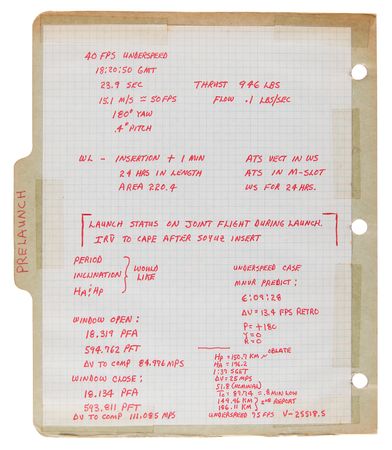 40 FPS UNDERSPEED
18:20:50 GMT
23.9 SEC
15.1 M/S = 50 FPS
180° YAW
.4° PITCH
THRUST 946 LBS
FLOW .1 LBS/SEC
WL - INSERTION + 1 MIN
24 HRS IN LENGTH
AREA 220.4
ATS VECT IN WS
ATS IN M-SLOT
WS FOR 24 HRS.
LAUNCH STATUS ON JOINT FLIGHT DURING LAUNCH.
IRV TO CAPE AFTER SOYUZ INSERT
PRELAUNCH
PERIOD
INCLINATION
HA & HP
WOULD
LIKE
WINDOW OPEN:
18.319 PFA
594.762 PFT
ΔV TO COMP 84.976 MPS
WINDOW CLOSE:
18.134 PFA
593.811 PFT
ΔV TO COMP 111.085 MPS
UNDERSPEED CASE
MNVR PREDICT:
6:09:28
ΔV = 13.4 FPS RETRO
P = +180
Y = 0
R = 0
OBLATE
HP = 150.7 KM
HA = 196.2
1:39 SGET
ΔV = 25 MPS
51.8 (NOMINAL)
= .8 MIN LOW
149.46 KM
186.11 KM
REPORT
UNDERSPEED 75 FPS V-25518.5